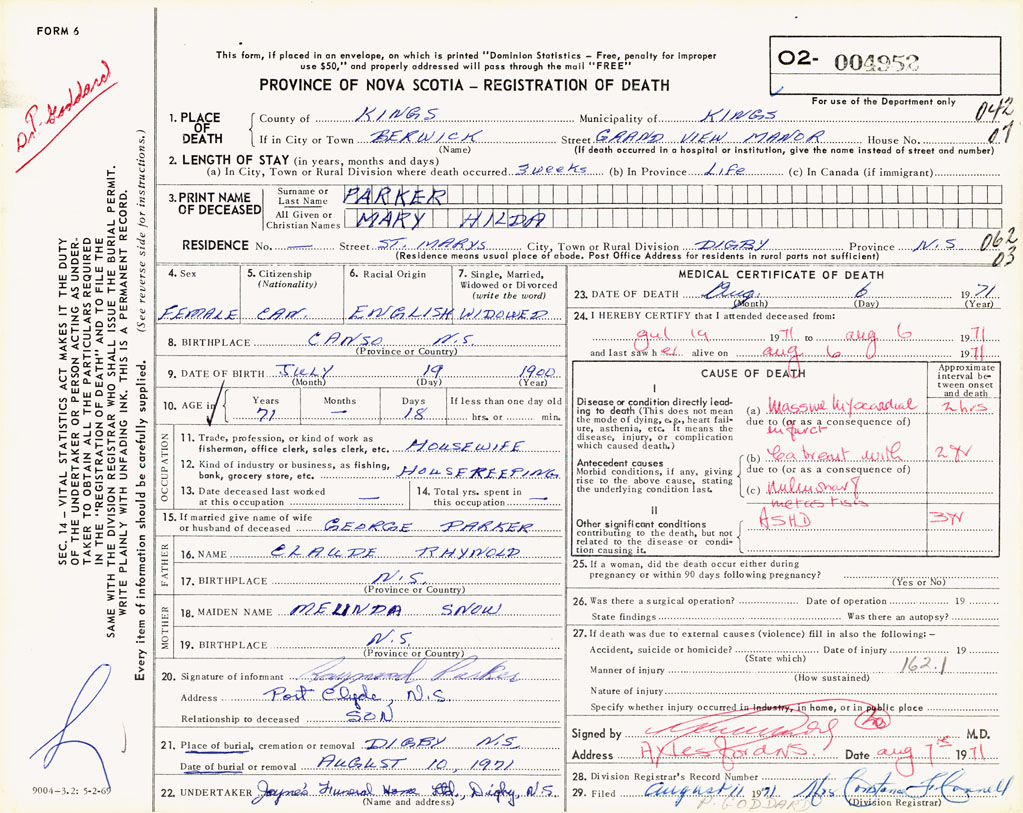 FORM 6
Dr. P. Goddard
This form, if placed in an envelope, on which is printed "Dominion Statistics – Free, penalty for improper
use $50," and properly addressed will pass through the mail "FREE"
PROVINCE OF NOVA SCOTIA – REGISTRATION OF DEATH
02- 004952
For use of the Department only
042
07
1. PLACE OF DEATH
County of KINGS Municipality of KINGS
If in City or Town BERWICK Street GRAND VIEW MANOR House No.
(Name) (If death occurred in a hospital or institution, give the name instead of street and number)
2. LENGTH OF STAY (in years, months and days)
(a) In City, Town or Rural Division where death occurred 3 weeks (b) In Province Life (c) In Canada (if immigrant)
3. PRINT NAME OF DECEASED
Surname or Last Name PARKER
All Given or Christian Names MARY HILDA
RESIDENCE No. — Street ST. MARYS City, Town or Rural Division DIGBY Province N.S
(Residence means usual place of abode. Post Office Address for residents in rural parts not sufficient)
062
03
4. Sex
FEMALE
5. Citizenship
(Nationality)
CAN.
6. Racial Origin
ENGLISH
7. Single, Married,
Widowed or Divorced
(write the word)
WIDOWED
8. BIRTHPLACE CANSO N.S.
(Province or Country)
9. DATE OF BIRTH JULY 19 1900
(Month) (Day) (Year)
10. AGE in
Years Months Days If less than one day old
71 — 18 hrs. or min.
OCCUPATION
11. Trade, profession, or kind of work as
fisherman, office clerk, sales clerk, etc. HOUSEWIFE
12. Kind of industry or business, as fishing,
bank, grocery store, etc. HOUSEKEEPING
13. Date deceased last worked
at this occupation —
14. Total yrs. spent in
this occupation —
15. If married give name of wife
or husband of deceased GEORGE PARKER
FATHER
16. NAME CLAUDE RHYNOLD
17. BIRTHPLACE N.S.
(Province or Country)
MOTHER
18. MAIDEN NAME MELINDA SNOW
19. BIRTHPLACE N.S.
(Province or Country)
20. Signature of informant Raymond Parker
Address Port Clyde, N.S.
Relationship to deceased SON
21. Place of burial, cremation or removal DIGBY N.S.
Date of burial or removal AUGUST 10, 1971
22. UNDERTAKER Jayne's Funeral Home Ltd. Digby, N.S.
(Name and address)
MEDICAL CERTIFICATE OF DEATH
23. DATE OF DEATH Aug. 6 1971
(Month) (Day) (Year)
24. I HEREBY CERTIFY that I attended deceased from:
Jul 19 1971 to Aug 6 1971
and last saw her alive on Aug 6 1971
CAUSE OF DEATH
Approximate
interval be-
tween onset
and death
I
Disease or condition directly lead-
ing to death (This does not mean
the mode of dying, e.g., heart fail-
ure, asthenia, etc. It means the
disease, injury, or complication
which caused death.)
(a) Massive Myocardial 2 hrs
due to (or as a consequence of)
infarct
Antecedent causes
Morbid conditions, if any, giving
rise to the above cause, stating
the underlying condition last.
(b) Ca breast with 2 yr
due to (or as a consequence of)
(c) Pulmonary
metastisis
II
Other significant conditions
contributing to the death, but not
related to the disease or condi-
tion causing it.
ASHD 3 yr
25. If a woman, did the death occur either during
pregnancy or within 90 days following pregnancy?
(Yes or No)
26. Was there a surgical operation? Date of operation 19
State findings Was there an autopsy?
27. If death was due to external causes (violence) fill in also the following: –
Accident, suicide or homicide? Date of injury 19
(State which)
162.1
Manner of injury
(How sustained)
Nature of injury
Specify whether injury occurred in industry, in home, or in public place
Signed by M.D.
Address Aylesford NS. Date Aug 7th 1971
28. Division Registrar's Record Number
29. Filed August 11 1971 Mrs Constance
(Division Registrar)
P. GODDARD
SEC. 14 – VITAL STATISTICS ACT MAKES IT THE DUTY
OF THE UNDERTAKER OR PERSON ACTING AS UNDER-
TAKER TO OBTAIN ALL THE PARTICULARS REQUIRED
IN THE "REGISTRATION OF DEATH" AND TO FILE THE
SAME WITH THE DIVISION REGISTRAR WHO SHALL ISSUE THE BURIAL PERMIT.
WRITE PLAINLY WITH UNFADING INK. THIS IS A PERMANENT RECORD.
Every item of information should be carefully supplied. (See reverse side for instructions.)
9004-3.2: 5-2-69